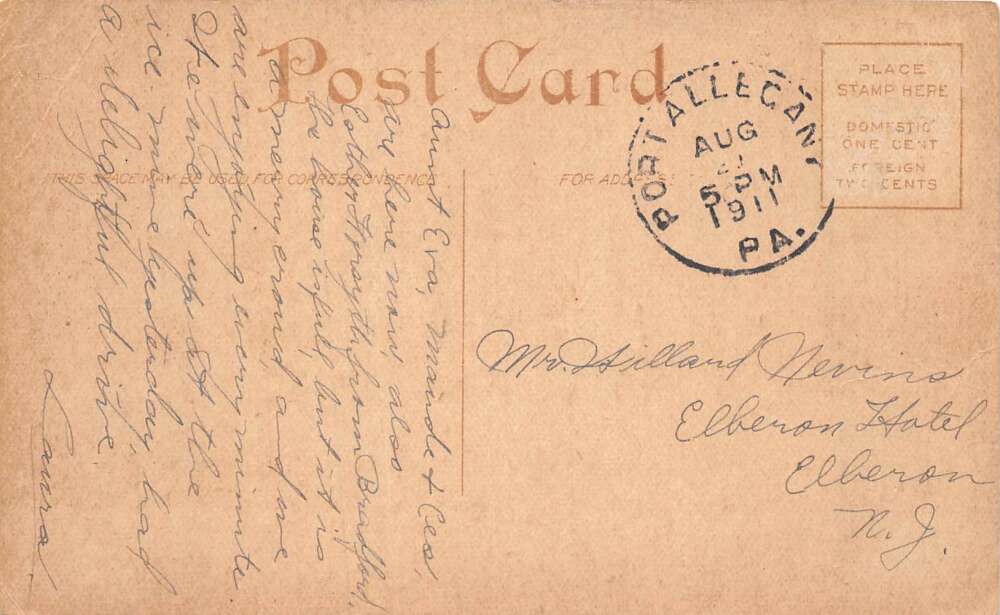 Post Card
THIS SPACE MAY BE USED FOR CORRESPONDENCE
FOR ADDRESS
PLACE
STAMP HERE
DOMESTIC
ONE CENT
FOREIGN
TWO CENTS
PORT ALLEGANY
AUG
5 PM
1911
PA.
Aunt Eva, Maude & Ceo,
are here now, also
Forsyth from Bradford,
the house is full, but it is
a merry crowd and we
are enjoying every minute
We were up at the
ice mine yesterday, had
a delightful drive
Laura.
Mr. Hillard Nevins
Elberon Hotel
Elberon
N.J.